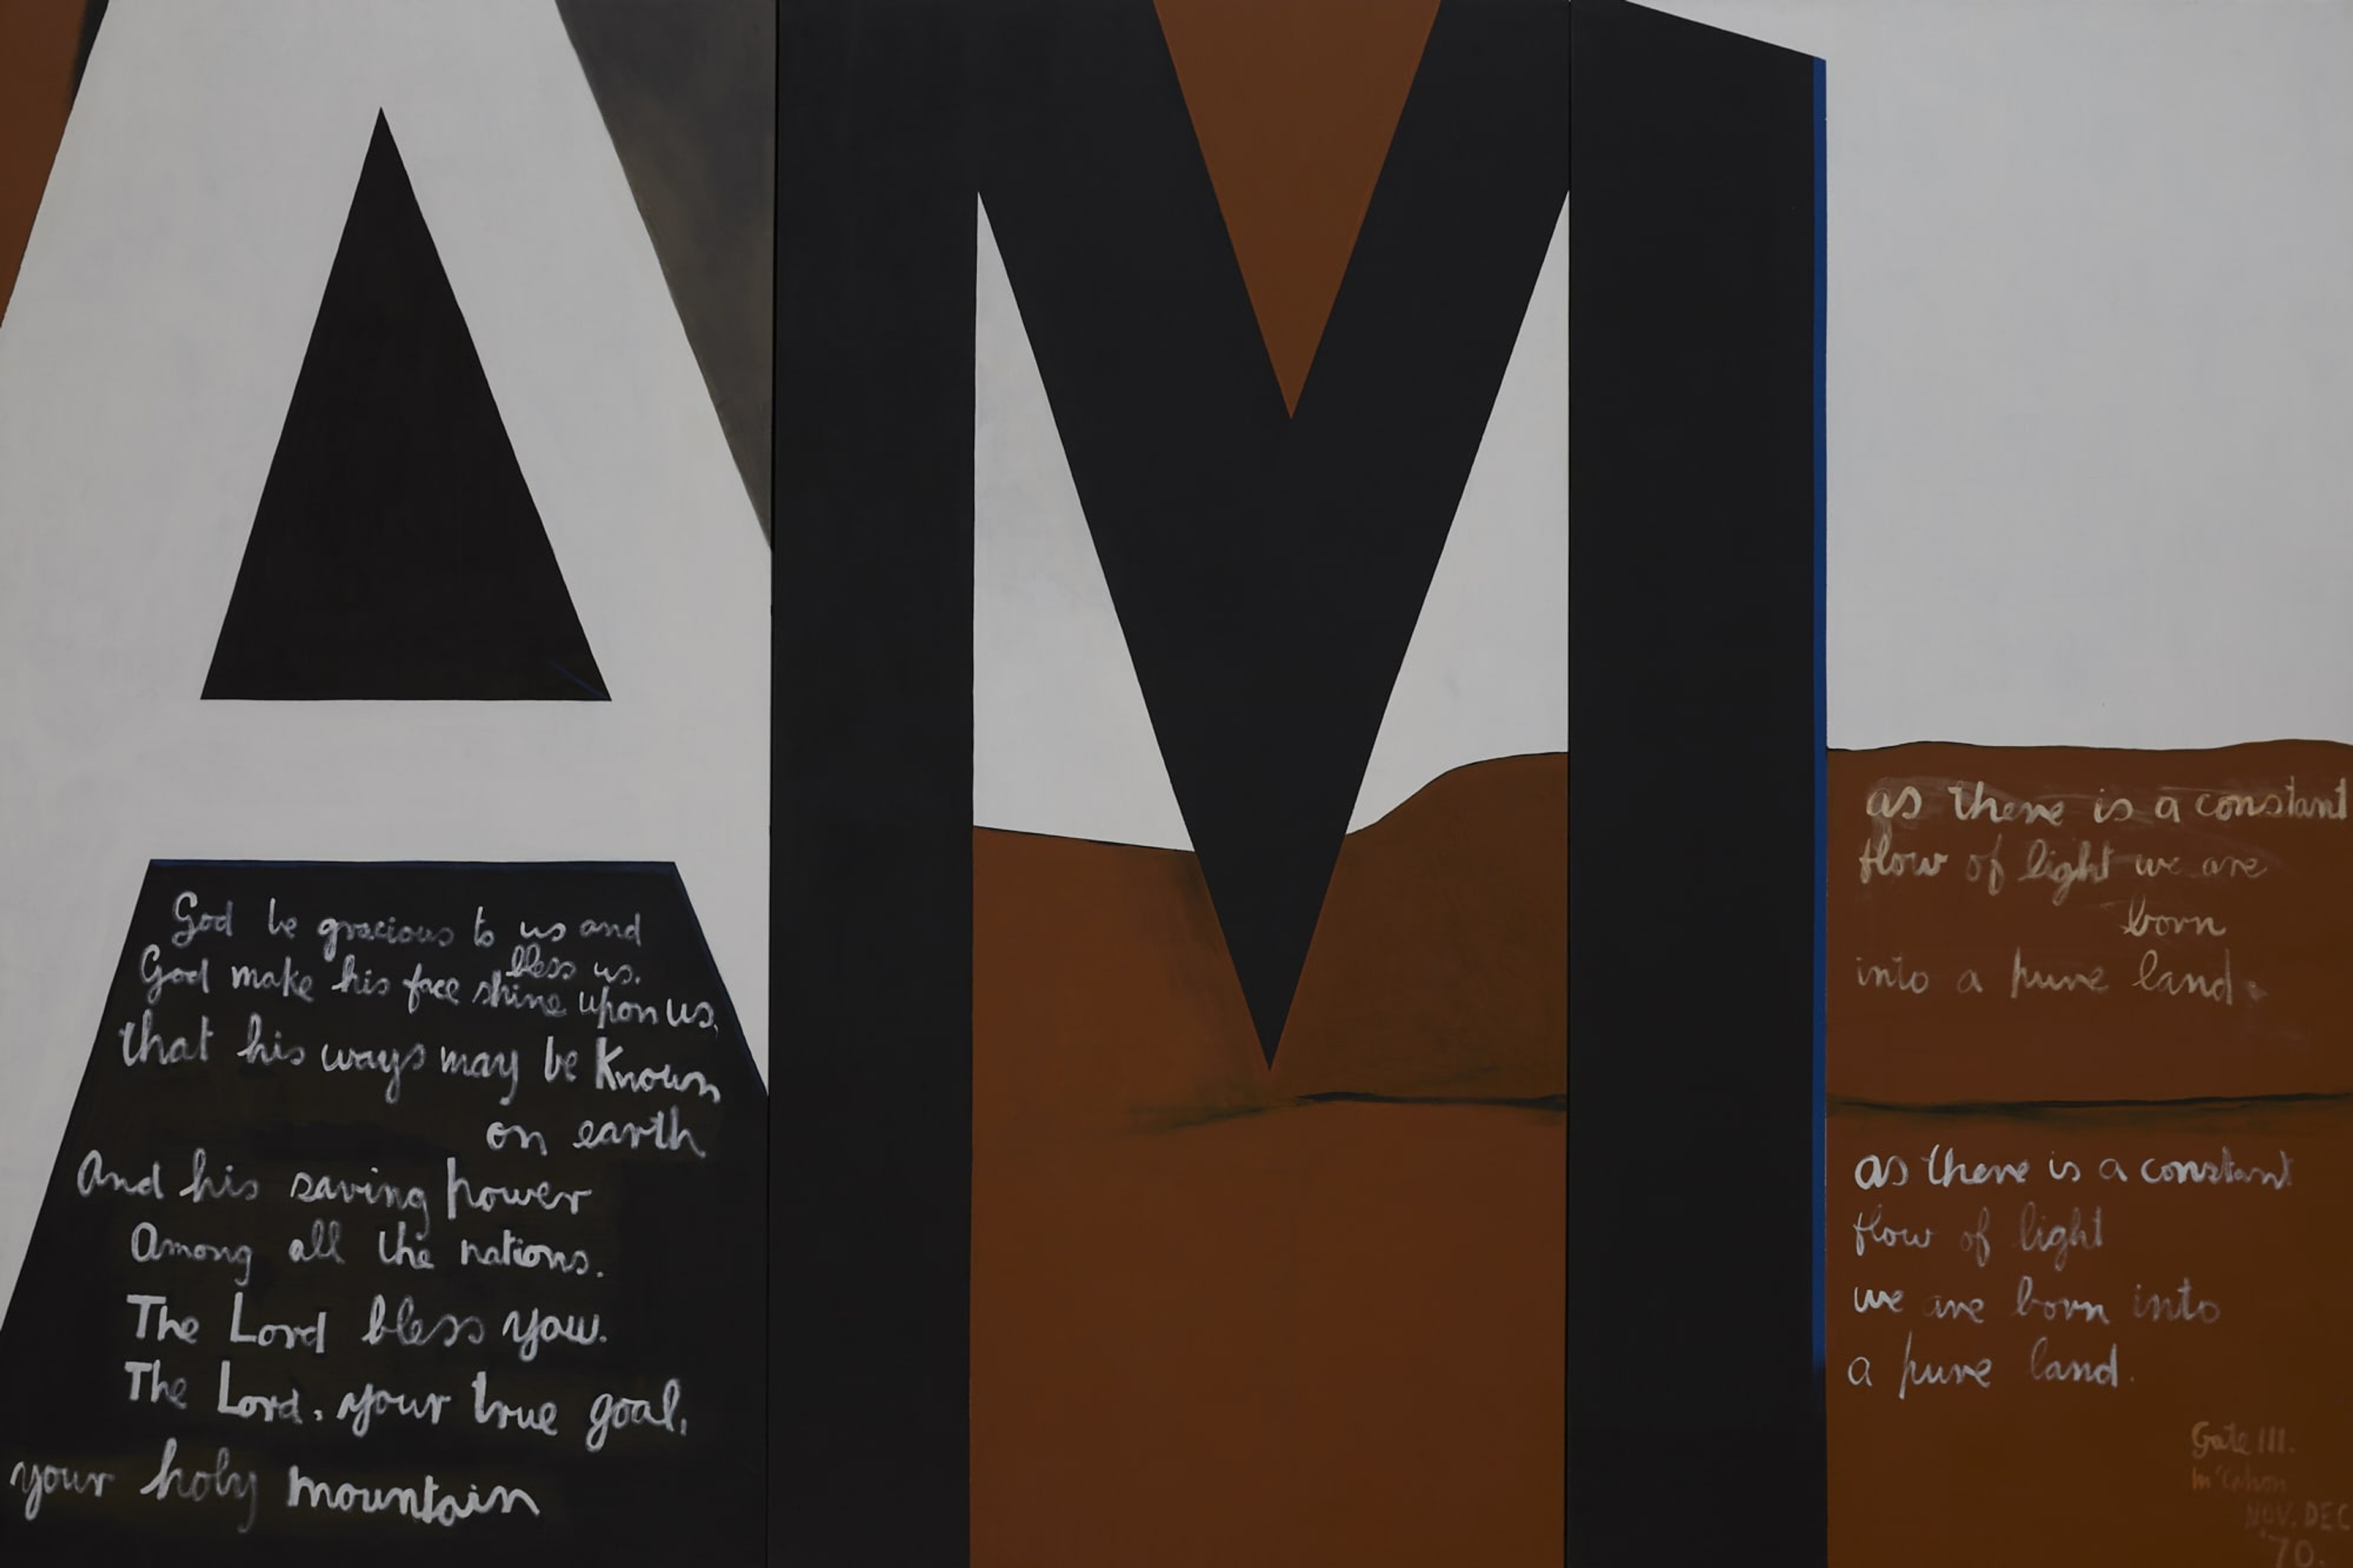 AM
God be gracious to us and
bless us.
God make his face shine upon us,
that his ways may be Known
on earth
And his saving power
Among all the nations.
The Lord bless you.
The Lord, your true goal,
your holy mountain
as there is a constant
flow of light we are
born
into a pure land.
as there is a constant
flow of light
we are born into
a pure land.
Gate III.
McCahon
NOV. DEC
'70.